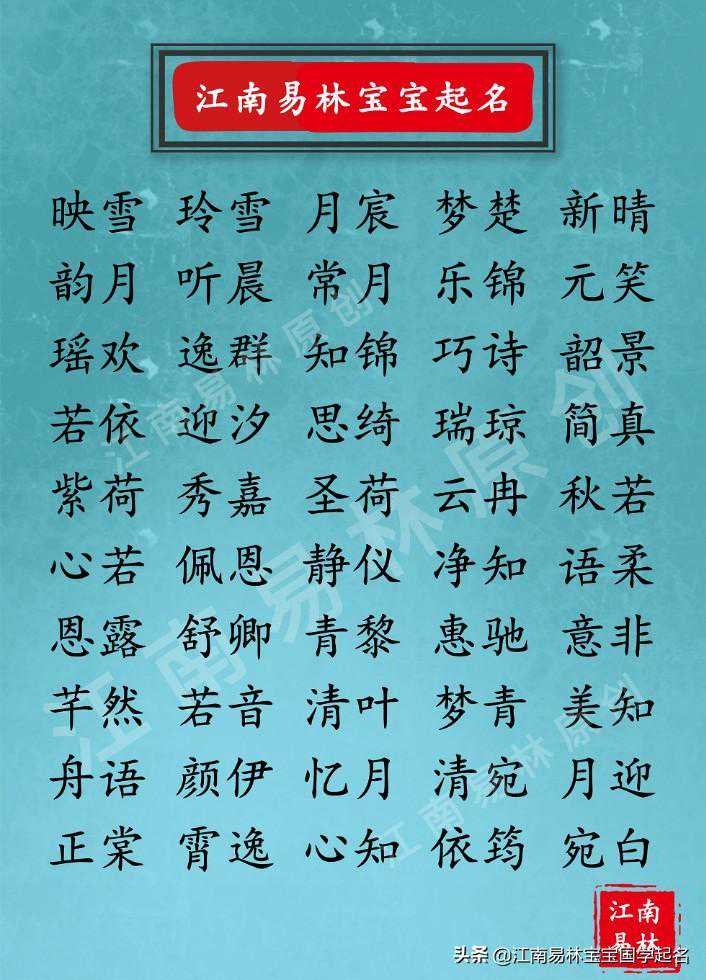 江南易林宝宝起名
映雪 玲雪 月宸 梦楚 新晴
韵月 听晨 常月 乐锦 元笑
瑶欢 逸群 知锦 巧诗 韶景
若依 迎汐 思绮 瑞琼 简真
紫荷 秀嘉 圣荷 云冉 秋若
心若 佩恩 静仪 净知 语柔
恩露 舒卿 青黎 惠驰 意非
芊然 若音 清叶 梦青 美知
舟语 颜伊 忆月 清宛 月迎
正棠 霄逸 心知 依筠 宛白
江南易林原创
江南易林原创
江南易林原创
江南
易林
头条 @江南易林宝宝国学起名